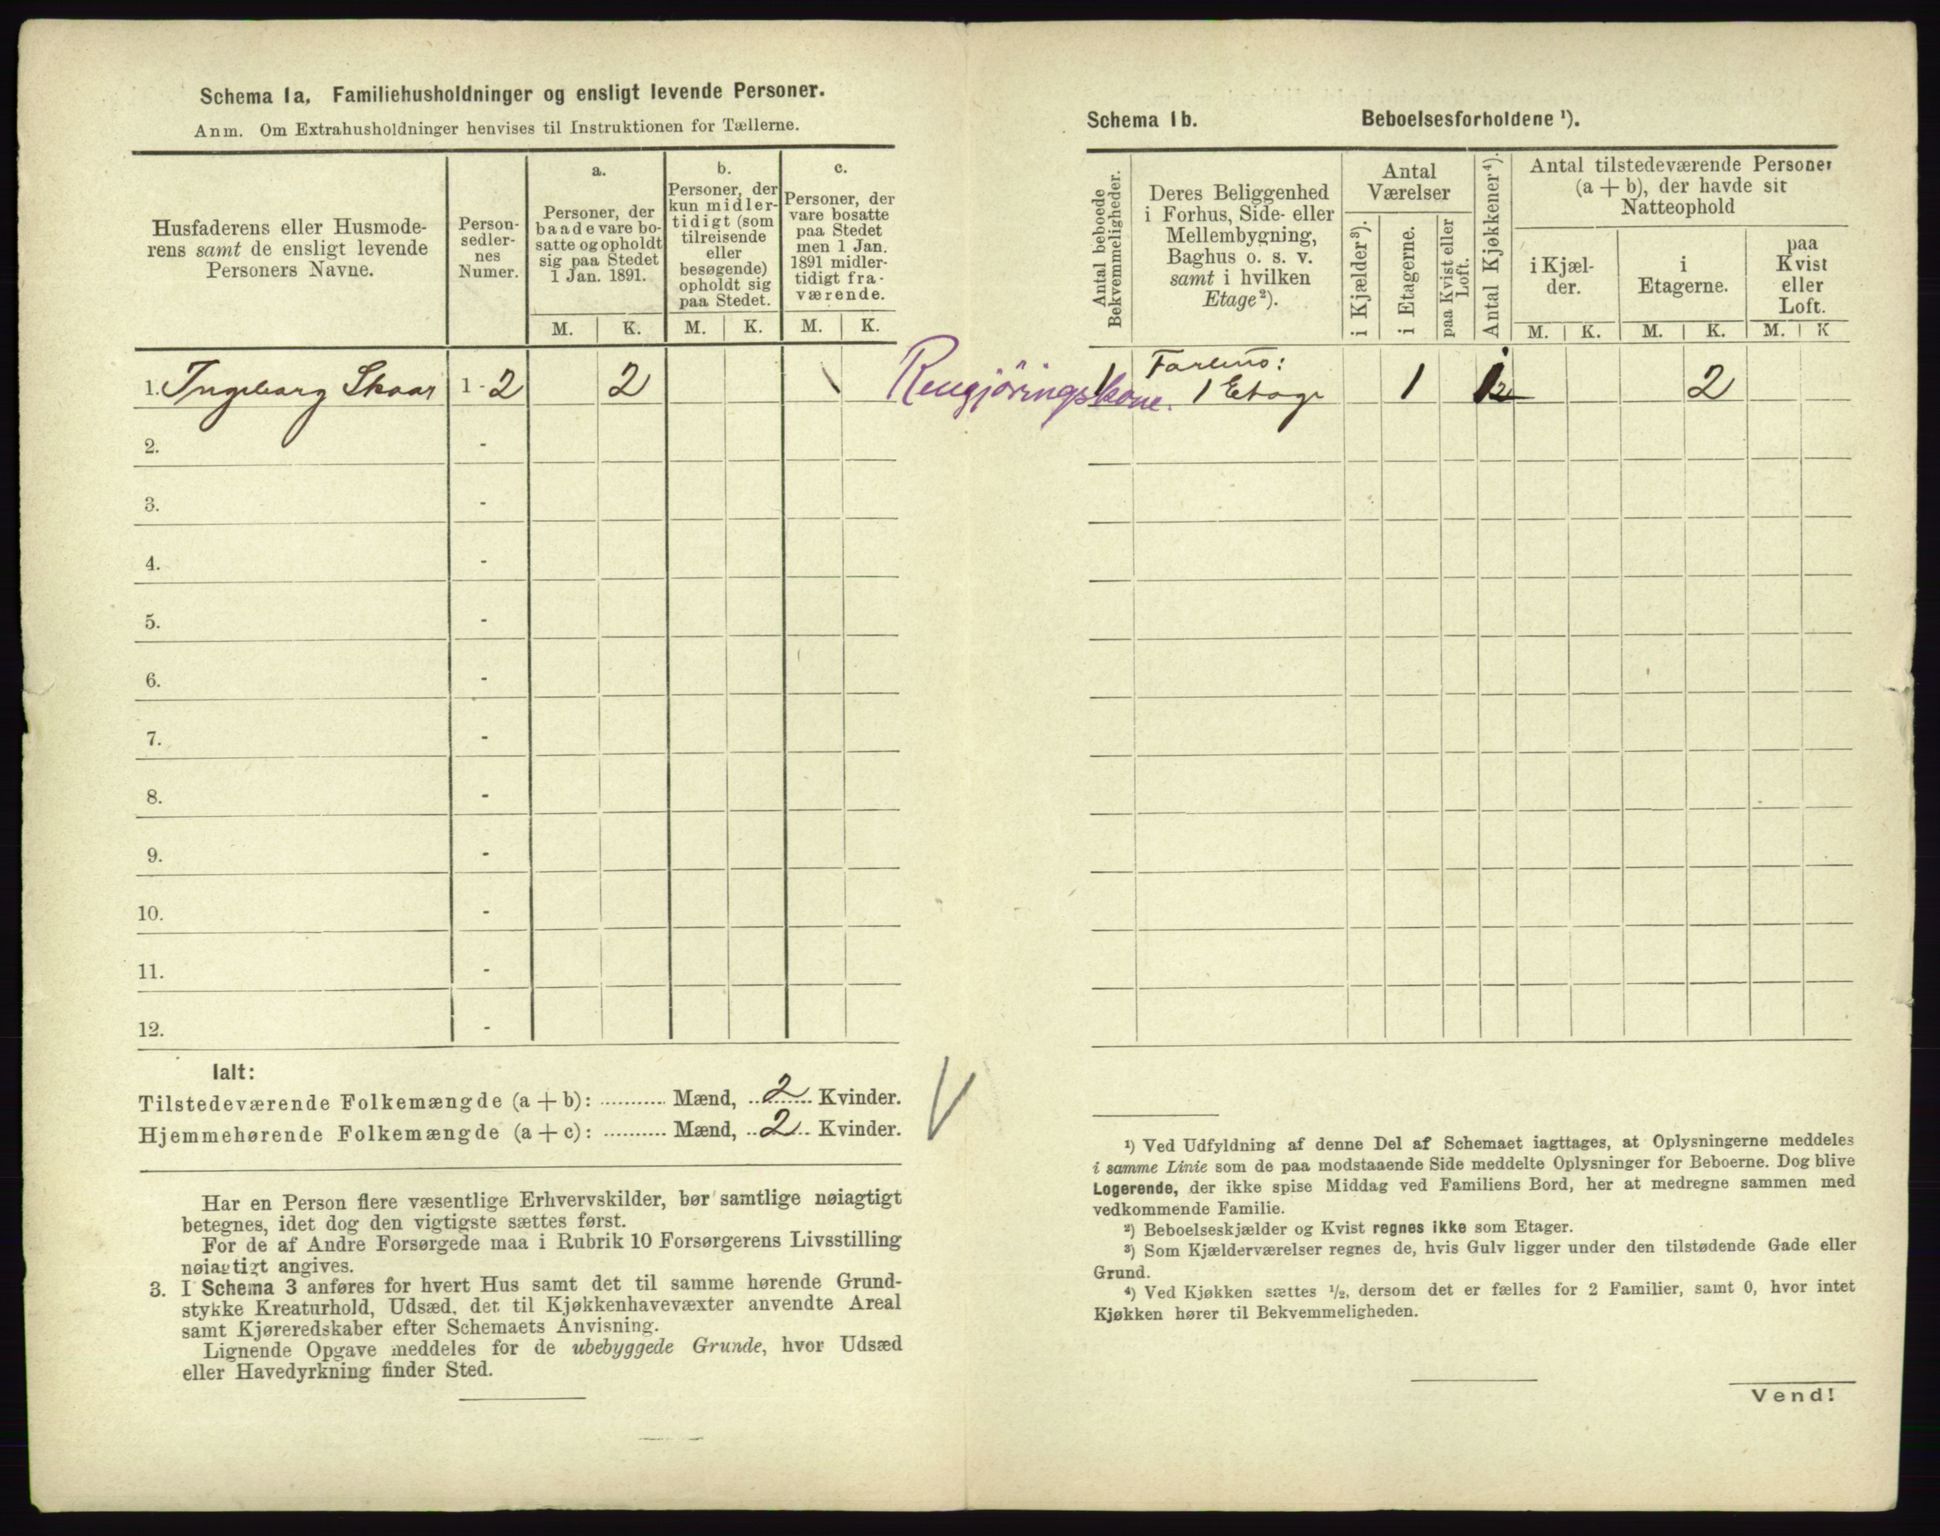 Schema 1a. Familiehusholdninger og ensligt levende Personer.
Anm. Om Extrahusholdninger henvises til Instruktionen for Tællerne.
Husfaderens eller Husmode-
rens samt de ensligt levende
Personers Navne.
Person-
sedler-
nes
Numer.
a.
Personer, der
baade vare bo-
satte og opholdt
sig paa Stedet
1 Jan. 1891.
M. K.
b.
Personer, der
kun midler-
tidigt (som
tilreisende
eller
besøgende)
opholdt sig
paa Stedet.
M. K.
c.
Personer, der
vare bosatte
paa Stedet
men 1 Jan.
1891 midler-
tidigt fra-
værende.
M. K.
1. Ingeborg Skaar 1 - 2 2
2. -
3. -
4. -
5. -
6. -
7. -
8. -
9. -
10. -
11. -
12. -
Ialt:
Tilstedeværende Folkemængde (a + b): ........... Mænd, 2 Kvinder.
Hjemmehørende Folkemængde (a + c): ........... Mænd, 2 Kvinder.
Har en Person flere væsentlige Erhvervskilder, bør samtlige nøiagtigt
betegnes, idet dog den vigtigste sættes først.
For de af Andre Forsørgede maa i Rubrik 10 Forsørgerens Livsstilling
nøiagtigt angives.
3. I Schema 3 anføres for hvert Hus samt det til samme hørende Grund-
stykke Kreaturhold, Udsæd, det til Kjøkkenhavevæxter anvendte Areal
samt Kjøreredskaber efter Schemaets Anvisning.
Lignende Opgave meddeles for de ubebyggede Grunde, hvor Udsæd
eller Havedyrkning finder Sted.
Schema 1b. Beboelsesforholdene ¹).
Antal beboede
Bekvemmeligheder.
Deres Beliggenhed
i Forhus, Side- eller
Mellembygning,
Baghus o. s. v.
samt i hvilken
Etage ²).
Antal
Værelser
i Kjælder ³).
i Etagerne.
paa Kvist eller
Loft.
Antal Kjøkkener ⁴).
Antal tilstedeværende Personer
(a + b), der havde sit
Natteophold
i Kjæl-
der.
i
Etagerne.
paa
Kvist
eller
Loft.
M. K. M. K. M. K
Rengjöringskone. 1 1 Etage 1 2
¹) Ved Udfyldning af denne Del af Schemaet iagttages, at Oplysningerne meddeles
i samme Linie som de paa modstaaende Side meddelte Oplysninger for Beboerne. Dog blive
Logerende, der ikke spise Middag ved Familiens Bord, her at medregne sammen med
vedkommende Familie.
²) Beboelseskjælder og Kvist regnes ikke som Etager.
³) Som Kjælderværelser regnes de, hvis Gulv ligger under den tilstødende Gade eller
Grund.
⁴) Ved Kjøkken sættes ½, dersom det er fælles for 2 Familier, samt 0, hvor intet
Kjøkken hører til Bekvemmeligheden.
Vend!